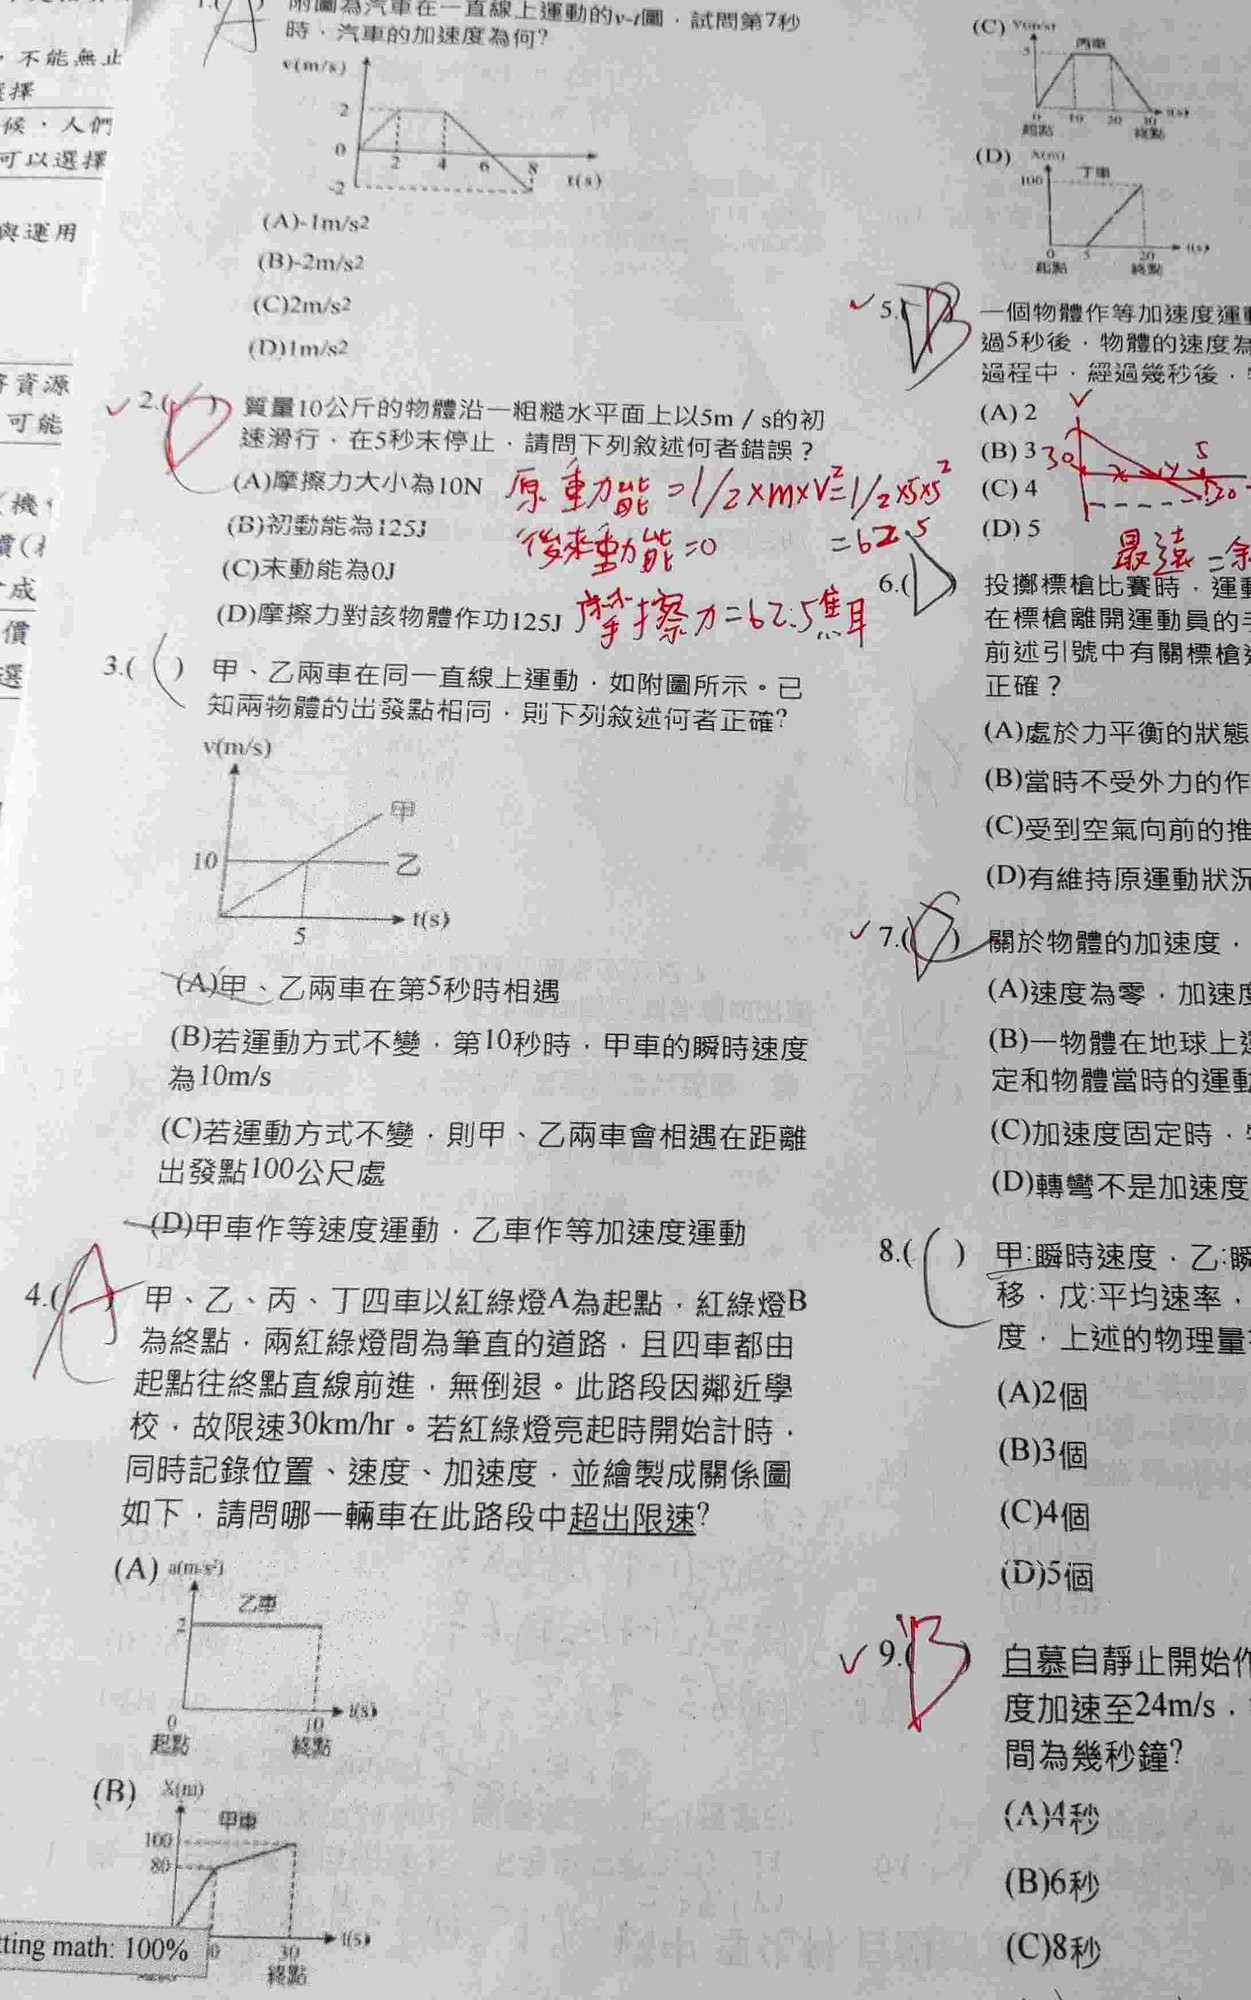 不能無止
擇
候,人們
可以選擇
與運用
資源
可能
(機
成
價
選
1.( A ) 附圖為汽車在一直線上運動的v-t圖,試問第7秒
時,汽車的加速度為何?
v(m/s)
2
0
2 4 6 8
t(s)
-2
(A)-1m/s2
(B)-2m/s2
(C)2m/s2
(D)1m/s2
2.( D ) 質量10公斤的物體沿一粗糙水平面上以5m/s的初
速滑行,在5秒末停止,請問下列敘述何者錯誤?
(A)摩擦力大小為10N
(B)初動能為125J
(C)末動能為0J
(D)摩擦力對該物體作功125J
原動能=1/2×m×v²=1/2×5×5²
後來動能=0 =62.5
摩擦力=62.5焦耳
3.( ) 甲、乙兩車在同一直線上運動,如附圖所示。已
知兩物體的出發點相同,則下列敘述何者正確?
v(m/s)
甲
10
乙
5
t(s)
(A)甲、乙兩車在第5秒時相遇
(B)若運動方式不變,第10秒時,甲車的瞬時速度
為10m/s
(C)若運動方式不變,則甲、乙兩車會相遇在距離
出發點100公尺處
(D)甲車作等速度運動,乙車作等加速度運動
4.( A ) 甲、乙、丙、丁四車以紅綠燈A為起點,紅綠燈B
為終點,兩紅綠燈間為筆直的道路,且四車都由
起點往終點直線前進,無倒退。此路段因鄰近學
校,故限速30km/hr。若紅綠燈亮起時開始計時,
同時記錄位置、速度、加速度,並繪製成關係圖
如下,請問哪一輛車在此路段中超出限速?
(A) a(m/s²)
乙車
2
0 10 t(s)
起點 終點
(B) X(m)
甲車
100
80
0 30 t(s)
終點
tting math: 100%
(C) V(m/s)
丙車
5
0 10 20 30 t(s)
起點 終點
(D) X(m)
丁車
100
0 5 20 t(s)
起點 終點
5.( B 一個物體作等加速度運動
過5秒後,物體的速度為
過程中,經過幾秒後,
(A) 2
(B) 3
(C) 4
(D) 5
V
30
5
x
最遠=
6.( D ) 投擲標槍比賽時,運動
在標槍離開運動員的手
前述引號中有關標槍
正確?
(A)處於力平衡的狀態
(B)當時不受外力的作
(C)受到空氣向前的推
(D)有維持原運動狀況
7.( ) 關於物體的加速度,
(A)速度為零,加速度
(B)一物體在地球上運
定和物體當時的運動
(C)加速度固定時,
(D)轉彎不是加速度
8.( ) 甲:瞬時速度,乙:瞬
移,戊:平均速率,
度,上述的物理量
(A)2個
(B)3個
(C)4個
(D)5個
9.( B ) 白慕自靜止開始作
度加速至24m/s,
間為幾秒鐘?
(A)4秒
(B)6秒
(C)8秒